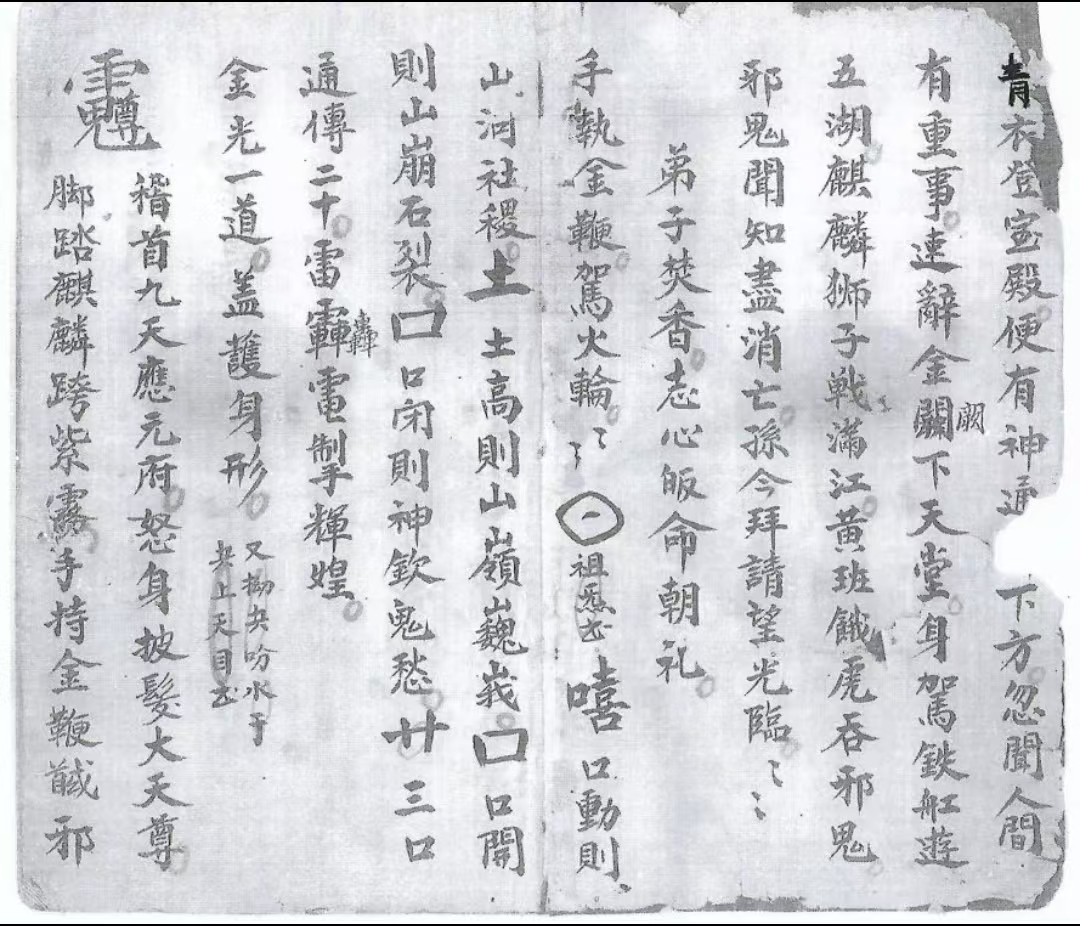 青衣登宝殿便有神通下方忽聞人間
有重事速辭金闕下天堂身駕鉄舡遊
闕
五湖麒麟狮子戦滿江黄班餓虎吞邪鬼
邪鬼聞知盡消亡孫今拜請望光臨〻〻
弟子焚香志心皈命朝礼
手執金鞭駕火輪〻〻
祖炁出嘻口動則
山河社稷土土高則山嶺巍峩口口開
則山崩石裂口口闭則神欽鬼愁廿三口
通傳二十雷轟電掣輝煌
轟
金光一道蓋護身形
又拗央吩水于
央上天目出
稽首九天應元府怒身披髮大天尊
脚踏麒麟跨紫霧手持金鞭馘邪